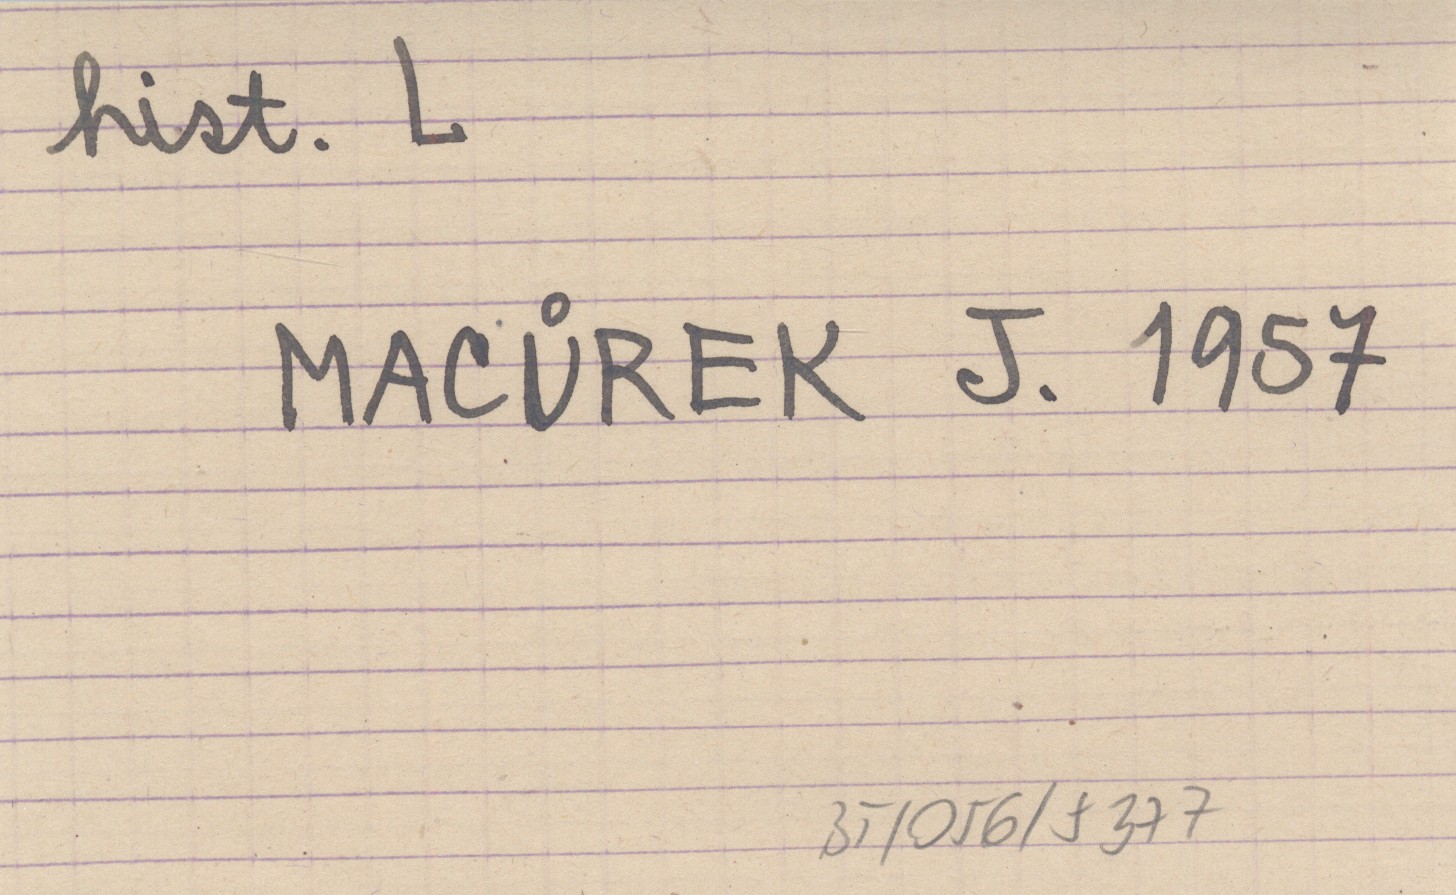 hist. L
MACŮREK J. 1957
35/056/5377